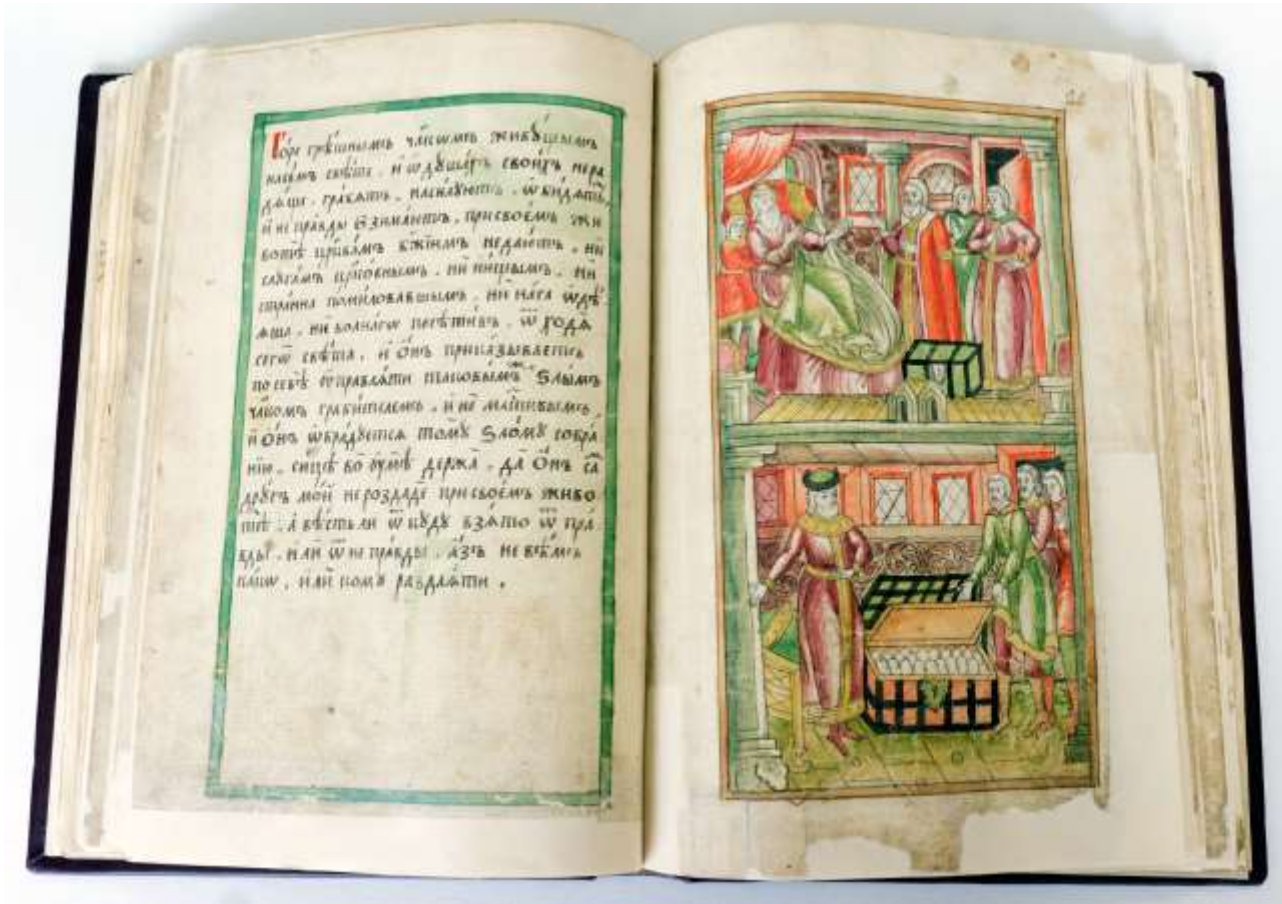 Го́ре грѣ́шнымъ чл҃комъ живꙋ́щымъ
насе́мъ свѣ́те. и҆ ѡ҆дꙋша́хъ свои́хъ нера
дѧ́щи. гра́бѧтъ, наси́лꙋютъ. ѡ҆би́дѧтъ,
и҆ не пра́вды взима́ютъ. при свое́мъ жи
вотѣ̀ цр҃ква́мъ бж҃іимъ недаю́тъ. ни
слꙋга́мъ цр҃ко́внымъ. ни ни́щымъ. ни
стра́нна поми́ловавшымъ. ни на́га ѡ҆дѣ́
ѧша. ни болна́гѡ посѣти́въ. ѿ ходѧ̀
сегѡ̀ свѣ́та. и҆ ѻ҆́нъ прика́зываетъ
по себѣ̀ ѹ҆правлѧ́ти таковы́мъ ѕлы́мъ
чл҃комъ граби́телемъ. и҆ не мл҃тивымъ.
и҆ ѻ҆́нъ ѡ҆бра́дꙋетсѧ томꙋ̀ ѕло́мꙋ собра́
нїю. си́це во ꙋ҆мѣ̀ держа̀. да ѻ҆́нъ са́
дрꙋ́гъ мо́й не розда́де при свое́мъ живо
тѣ̀. а҆ вѣ́сть ли ѿ кꙋ́дꙋ взѧ́то ѿ пра́
вды. и҆лѝ ѿ не пра́вды. а҆́зъ не вѣ́мъ
ка́кѡ. и҆лѝ комꙋ̀ раздаѧ́ти.